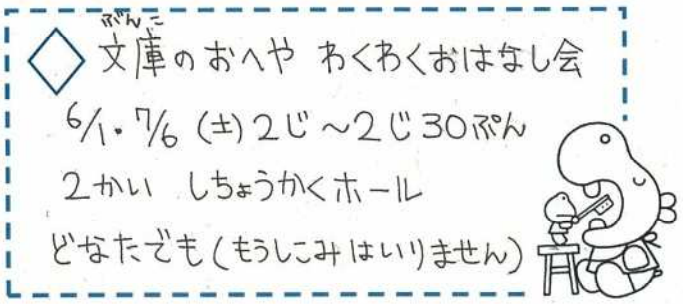 ぶんこ
文庫のおへや わくわくおはなし会
6/1・7/6 (土) 2じ～2じ30ぷん
2かい しちょうかくホール
どなたでも(もうしこみはいりません)